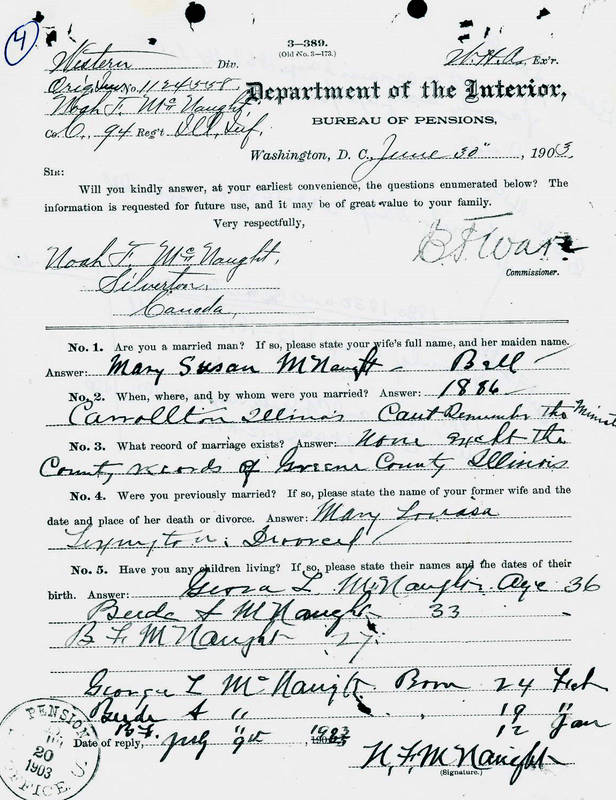 4
3—389.
(Old No. 3—173.)
Western Div. W.H.A. Ex'r.
Orig. Inv. No. 1124558
Noah F. McNaught,
Co. C, 94 Reg't Ill. Inf.
Department of the Interior,
BUREAU OF PENSIONS,
Washington, D. C., June 30", 1903.
SIR:
Will you kindly answer, at your earliest convenience, the questions enumerated below? The
information is requested for future use, and it may be of great value to your family.
Very respectfully,
Noah F. McNaught,
Silverton,
Canada,
Commissioner.
No. 1. Are you a married man? If so, please state your wife's full name, and her maiden name.
Answer: Mary Susan McNaught - Bell
No. 2. When, where, and by whom were you married? Answer: 1886
Carrollton Illinois Cant Remember the Minist
No. 3. What record of marriage exists? Answer: None Except the
County records of Greene County Illinois
No. 4. Were you previously married? If so, please state the name of your former wife and the
date and place of her death or divorce. Answer: Mary
Divorced
No. 5. Have you any children living? If so, please state their names and the dates of their
birth. Answer: L McNaught Age 36
McNaught 33
B F McNaught 27
George L McNaught Born 24 Feb
A " 19 "
B.F. " 12 Jan
Date of reply, July 9th 1903
N. F. McNaught
(Signature.)
PENSION
20
1903
OFFICE